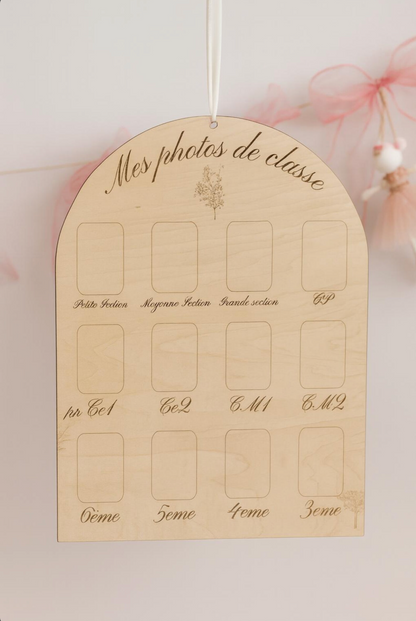 Mes photos de classe
Petite Section Moyenne Section Grande section CP
pr Ce1 Ce2 CM1 CM2
6ème 5eme 4eme 3eme